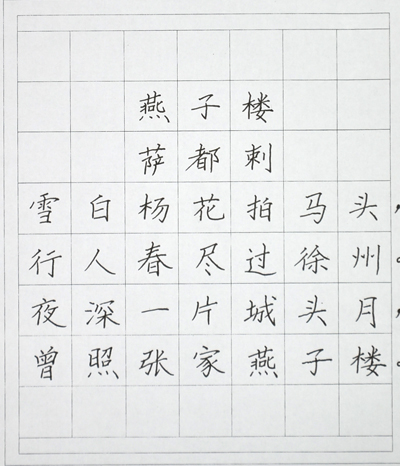 燕子楼
萨都刺
雪白杨花拍马头，
行人春尽过徐州。
夜深一片城头月，
曾照张家燕子楼。